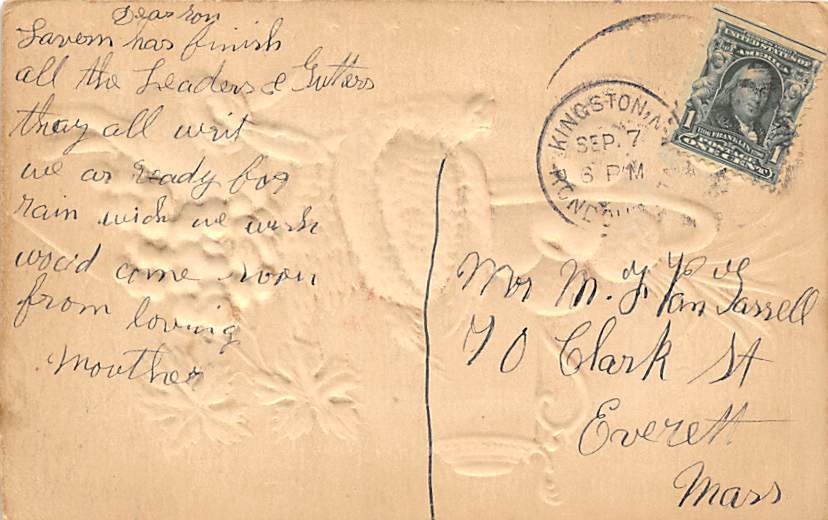 Dear son
Lavern has finish
all the Leaders & Gutters
thay all writ
we ar ready for
rain wich we wish
woud come soon
from loving
Mouther
KINGSTON, N
SEP. 7
6 PM
RONDOUT
UNITED STATES OF
AMERICA
1
FRANKLIN
1
ONE CENT
Mr M. J. Van Gassell
70 Clark St
Everett
Mass